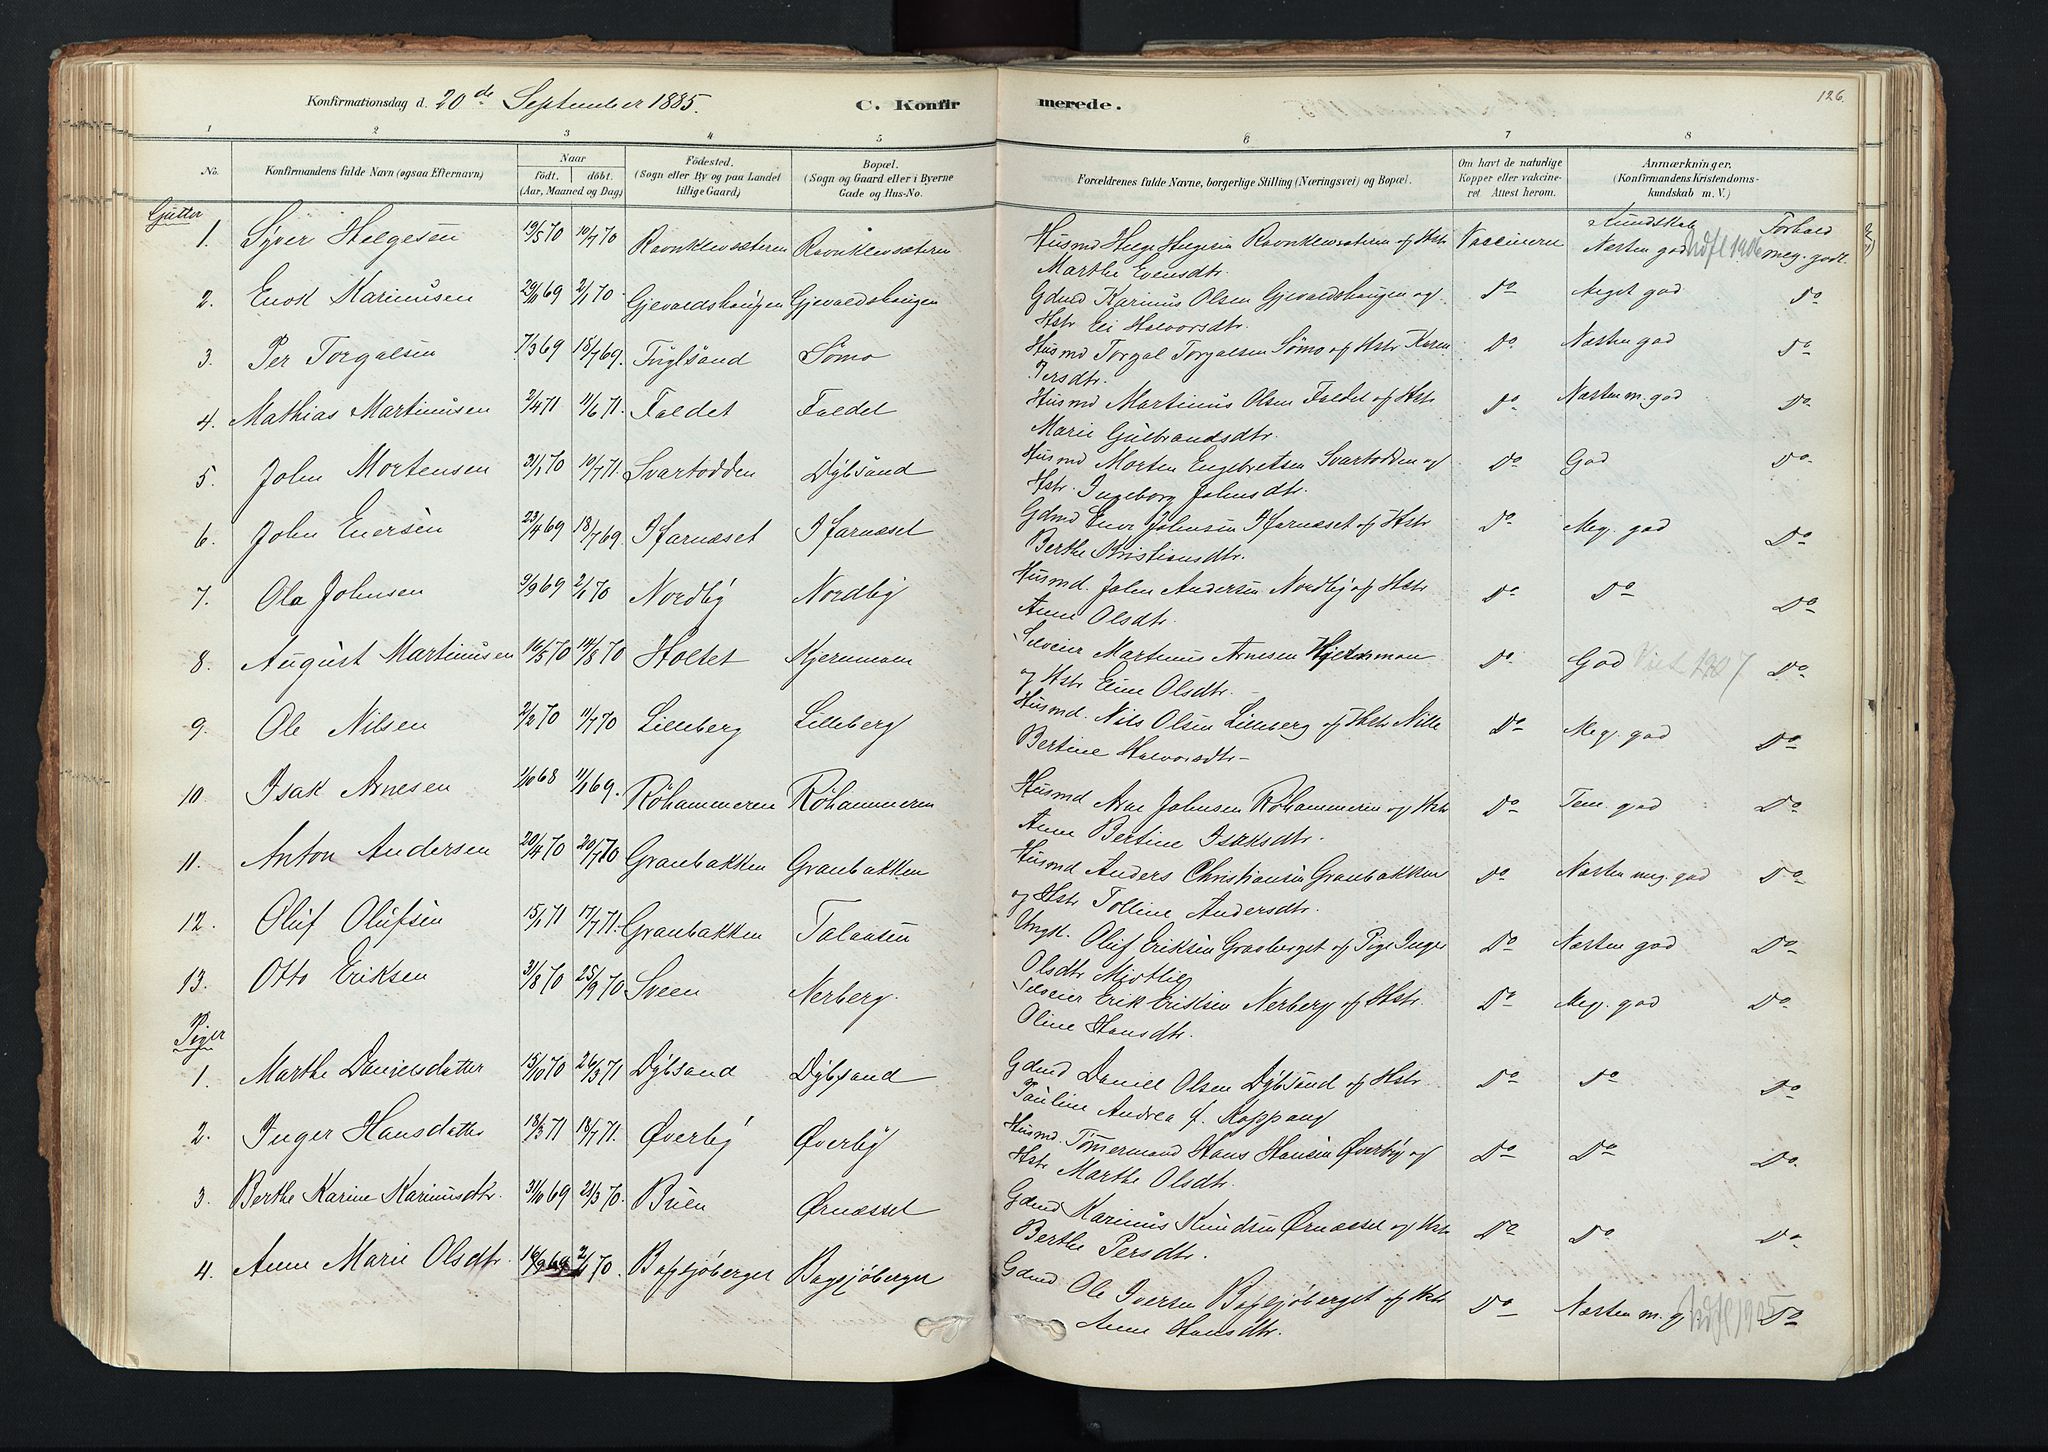 Konfirmationsdag d. 20de September 1885. C. Konfirmerede. 126.
1 2 3 4 5 6 7 8
No. Konfirmandens fulde Navn (ogsaa Efternavn) Naar født. døbt. (Aar, Maaned og Dag) Fødested. (Sogn eller By og paa Landet tillige Gaard) Bopæl. (Sogn og Gaard eller i Byerne Gade og Hus-No. Forældrenes fulde Navne, borgerlige Stilling (Næringsvei) og Bopæl. Om havt de naturlige Kopper eller vaccineret. Attest herom. Anmærkninger. (Konfirmandens Kristendomskundskab m. V.)
Gutter
Kundskab Forhold
1. Syver Helgesen 19/5 70 10/7 70 Ravnklevsæteren Ravnklevsæteren Husmd Helge Helgesen Ravnklevsæteren og Hstr Vaccinerede Næsten god Udfl 1906 meg. godt.
Marthe Evensdtr.
2. Enok Karinusen 29/10 69 2/1 70 Gjevaldshaugen Gjevaldshaugen Gdmd Karinus Olsen Gjevaldshaugen og Do Meget god Do
Hstr Eli Halvorsdtr.
3. Per Torgalsen 7/3 69 18/7 69. Fuglsand Sömo Husmd Torgal Torgalsen Sömo og Hstr Karen Do Næsten god Do
Persdtr.
4. Mathias Martinusen 2/4 71 11/6 71. Faldet Faldet Husmd Martinus Olsen Faldet og Hstr Do Næsten m. god Do
Marie Gulbrandsdtr.
5. John Mortensen 31/1 70 10/7 71. Svartodden Dÿbsand Husmd Morten Engebretsen Svartodden og Do God Do
Hstr. Ingeborg Johnsdtr.
6. John Enersen 23/4 69 18/7 69. Hfarnæset Hfarnæset Gdmd Ener Johnsen Hfarnæset og Hstr Do Meg. god Do
Berthe Kristiansdtr.
7. Ola Johnsen 9/9 69 2/1 70 Nordbÿ Nordbÿ Husmd. John Andersen Nordbÿ og Hstr Do Do Do
Anne Olsdtr.
8. August Martinusen 16/5 70 14/8 70 Holtet Kjernmoen Selveier Martinus Arnesen Kjernmoen Do God 1907 Do
og Hstr Eline Olsdtr.
9. Ole Nilsen 2/2 70 11/7 70 Lilleberg Lilleberg Husmd. Nils Olsen Lilleberg og Hstr Nille Do Meg. god Do
Bertine Halvorsdtr
10. Isak Arnesen 1/10 68 11/1 69. Røhammeren Røhammeren Husmd Arne Johnsen Røhammeren og Hstr Do Tem. god Do
Anne Bertine Isaksdtr.
11. Anton Andersen 22/4 70 20/7 70 Granbakken Granbakken Husmd Anders Christiansen Granbakken Do Næsten meg. god Do
og Hstr Polline Andersdtr.
12. Oluf Olufsen 15/1 71 17/7 71. Granbakken Talaasen Ungk. Oluf Eriksen Grasberget og Pige Inger Do Næsten god Do
Olsdtr Mjøtlien
13. Otto Eriksen 31/8 70 25/9 70 Sveen Nerberg. Selveier Erik Eriksen Nerberg og Hstr. Do Meg. god Do
Oline Hansdtr.
Piger
1. Marthe Danielsdatter 15/10 70 26/3 71 Dÿbsand Dÿbsand Gdmd Daniel Olsen Dÿbsand og Hstr. Do Do Do
Pauline Andrea f. Koppang
2. Inger Hansdatter 18/3 71 18/7 71. Øverbÿ Øverbÿ Husmd. Tømermand Hans Hansen Øverbÿ og Do Do Do
Hstr Marthe Olsdtr.
3. Berthe Karine Karinusdtr. 31/10 69 21/3 70. Buen Ørnæsset Gdmd Karinus Knudsen Ørnæsset og Hstr Do Do Do
Berthe Persdtr.
4. Anne Marie Olsdtr. 16/9 69 2/1 70. Bagsjøberget Bagsjøberget Gdmd Ole Iversen Bagsjøberget og Hstr Do Næsten m. g Udfl 1905 Do
Anne Hansdtr.